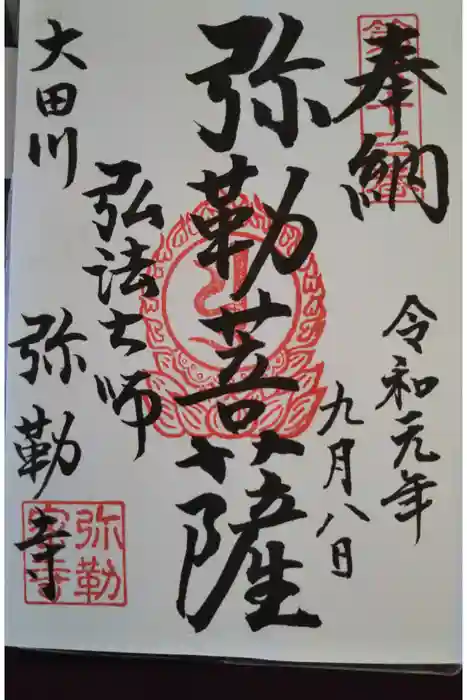 奉納
令和元年
九月八日
弥勒菩薩
弘法大師
大田川
弥勒寺
弥勒